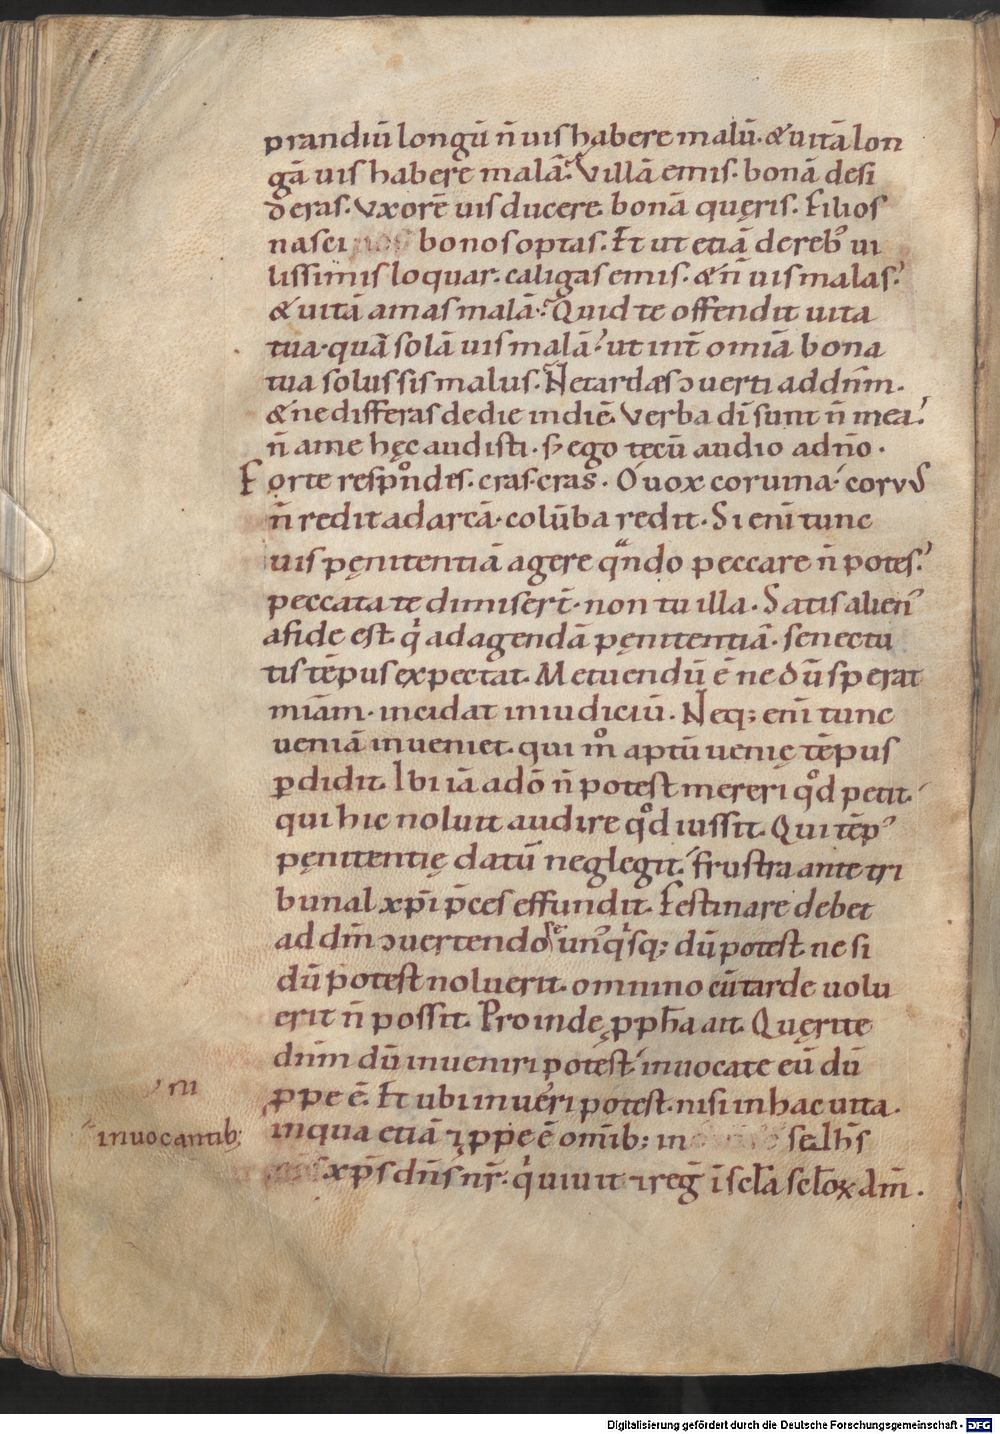 prandiū longū n̄ uis habere malū· & uitā lon
gā uis habere malā? Villā emis· bonā desi
deras· Vxorē uis ducere· bonā quęris· Filios
nasci bonos optas· Et ut etiā de reb; ui
lissimis loquar· caligas emis· & n̄ uis malas·
& uitā amas malā? Quid te offendit uita
tua· quā solā uis malā? ut int̄ omīa bona
tua solus sis malus· Ne tardes ɔuerti ad dn̄m·
& ne differas de die in diē· Verba dī sunt n̄ mea·
n̄ a me hęc audisti· s; ego tecū audio a dn̄o·
Forte respondes· cras· cras· O uox coruina· coruus
n̄ redit ad arcā· colūba redit· Si enī tunc
uis pęnitentiā agere qn̄do peccare n̄ potes·
peccata te dimisert̄· non tu illa· Satis alien᾿
a fide est· qͥ ad agendā pęnitentiā· senectu
tis tēpus expectat· Metuendū ē ne dū sperat
mīam· incidat in iudiciū· Neq; enī tunc
ueniā inueniet· qui m̊ aptū uenię tēpus
ꝑdidit· Ibi iā a dō n̄ potest mereri qͦd petit·
qui hic noluit audire qͦd iussit· Qui tēp᾿
pęnitentię datū neglegit· frustra ante tri
bunal xp̄i p̄ces effundit· Festinare debet
ad dm̄ ɔuertendo se un᾿qͥsq; dū potest ne si
dū potest noluerit· omnino cū tarde uolu
erit n̄ possit· Proinde ꝓph̄a ait· Quęrite
dn̄m dū inueniri potest· inuocate eū dū
ꝓpe ē· Et ubi inueri potest· nisi in hac uita·
ru
in qua etiā ⁊ ꝓpe ē omīb; in se ih̄s
inuocantib;
xp̄s dn̄s nr̄· qͥ uiuit ⁊ reḡ ī scl̄a scl̄oꝝ am̄·
Digitalisierung gefördert durch die Deutsche Forschungsgemeinschaft - DFG